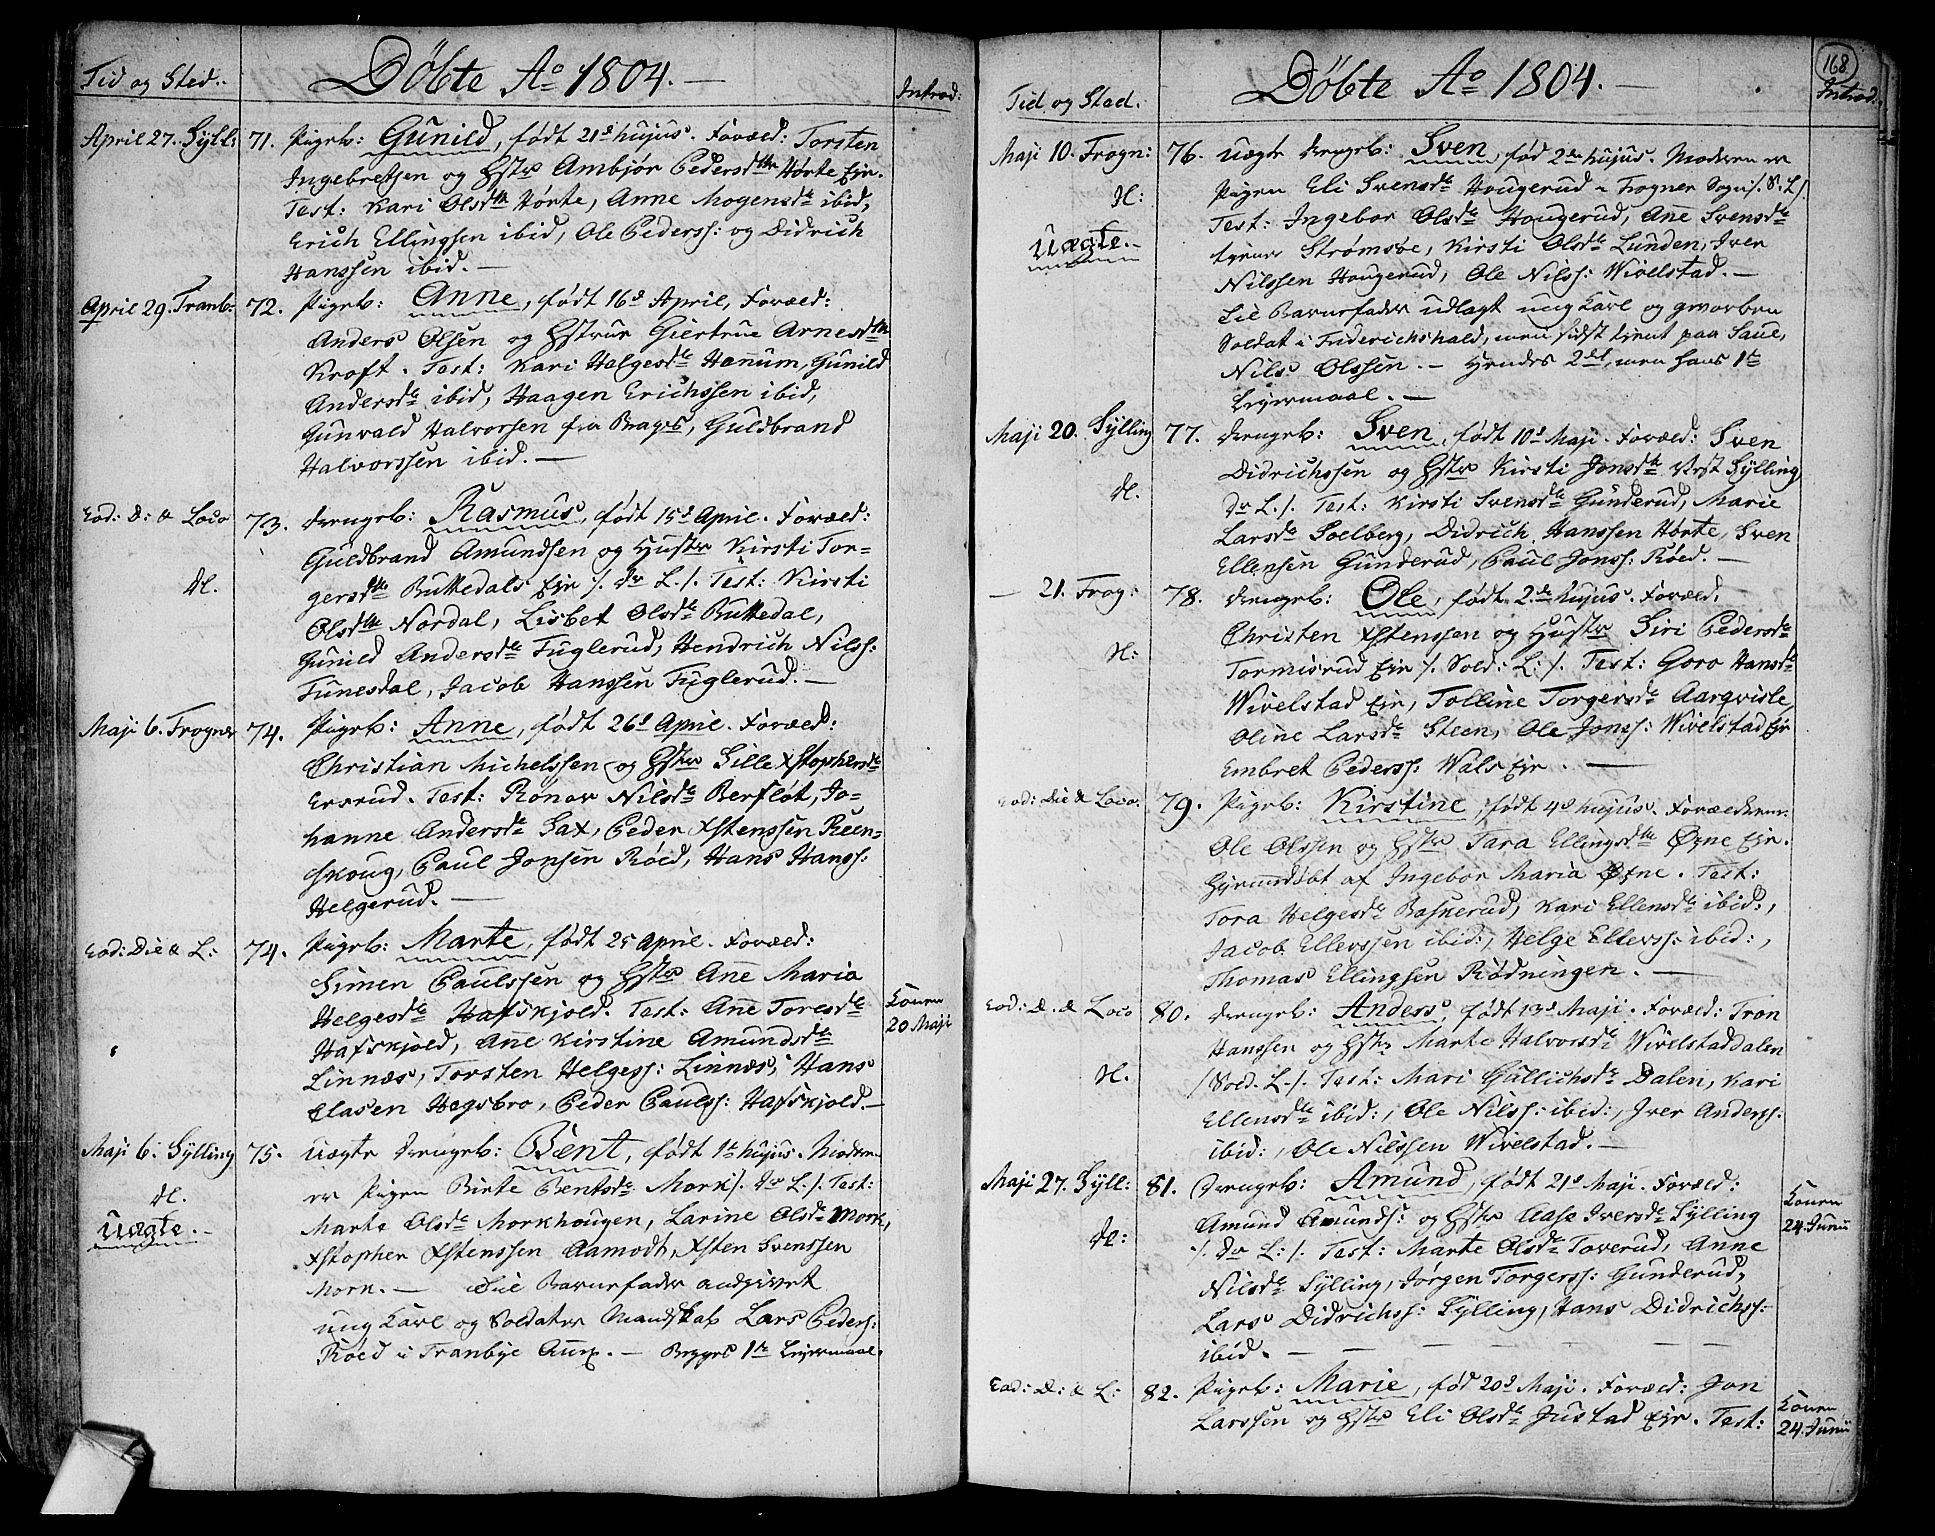 Tid og Sted.
Døbte Ao 1804.
Introd:
April 27. Sÿll:
71. Pigeb: Gunild, født 21d hujus. Foræld: Torsten
Ingebretsen og Hstr Ambjør Pedersdtr Hørte Eje.
Test: Kari Olsdtr Hørte, Anne Mogensdtr ibid,
Erich Ellingsen ibid, Ole Pederss: og Didrich
Hanssen ibid.
April 29. Tranb:
72. Pigeb: Anne, født 16d April, Foræld:
Anders Olsen og Hstrue Giertrue Arnesdtr
Kroft. Test: Kari Helgesdtr Hennum, Gunild
Andersdtr ibid, Haagen Erichssen ibid,
Gunvald Halvorssen fra Brages, Guldbrand
Halvorssen ibid.
Eod: D: & Loco
73. Drengeb: Rasmus, født 15d April. Foræld:
Guldbrand Amundsen og Hustr Kirsti Tor-
N.
gersdtr Buttedals Eje /. Dr L. /. Test: Kirsti
Olsdtr Nordal, Lisbet Olsdtr Buttedal,
Gunild Andersdtr Fuglerud, Hendrich Nilss:
Tunesdal, Jacob Hanssen Fuglerud.
Maji 6. Frogner
74. Pigeb: Anne, født 26d April. Foræld:
Christian Michelssen og Hstr Sille Xstophersdtr
Ersrud. Test: Rønov Nilsdtr Berfløt, Jo-
hanne Andersdtr Sax, Peder Xstenssen Reen-
skoug, Paul Jonsen Røed, Hans Hanss:
Helgerud.
Eod: Die & L:
74. Pigeb: Marte, født 25 April. Foræld:
Simen Paulssen og Hstr Ane Maria
Helgesdtr Hafskjold. Test: Ane Toresdtr
Konen
20 Maji
Hafskjold, Ane Kirstine Amundsdtr
Linnæs, Torsten Helgess: Linnæs, Hans
Clasen Hegsbro, Peder Paulss: Hafskjold.
Maji 6. Sÿlling
75. Uægte Drengeb: Bent, født 1te hujus. Moder
N.
er Pigen Birte Bentsdtr Mork /. Dr L. /. Test:
Uægte.
Marte Olsdtr Morkhougen, Larine Olsdtr Mork,
Xstopher Xstenssen Aamodt, Xsten Svenssen
Mork. Til Barnefader angivet
ung Karl og Soldater Mandskab Lars Peders:
Røed i Tranbye Anx. Begges 1te Leiermaal.
168
Tid og Sted.
Døbte Ao 1804.
Introd:
Maji 10. Frogn:
76. Uægte Drengeb: Sven, fød 2den hujus. Moderen er
N:
Pigen Eli Svensdtr Hougerud i Frogner Sogn /. S. L /.
Uægte.
Test: Ingebor Olsdtr Hougerud, Ane Svensdtr
tjener Strømsøe, Kirsti Olsdtr Lunden, Iver
Nilssen Hougerud, Ole Nilss: Wivelstad.
Til Barnefader udlagt ung Karl og gevorben
Soldat i Friderichshald, men sidst tjent paa Saue,
Nils Olssen. Hendes 2det, men hans 1te
Leiermaal.
Maji 20. Sÿlling
77. Drengeb: Sven, født 10d Maji. Foræld: Sven
Didrichssen og Hstr Kirsti Jonsdtr Vest Sÿlling
N.
Dr L. /. Test: Kirsti Svensdtr Gunderud, Marie
Larsdtr Soelberg, Didrich Hanssen Hørte, Sven
Ellensen Gunderud, Paul Jonss: Røed.
21. Frog:
78. Drengeb: Ole, født 2de hujus. Foræld:
Christen Xstenssen og Hustr Siri Pedersdtr
N:
Tormisrud Eje /. Sold: L: /. Test: Goro Hansdtr
Wivelstad Eje, Tolline Torgersdtr Aarqvisle,
Oline Larsdtr Steen, Ole Jonss: Wivelstad Eje
Embret Pederss: Wals Eje.
Eod: Die & Loco.
79. Pigeb: Kirstine, født 4d hujus. Forældrene:
Ole Olssen og Hstr Tara Ellingsdtr Øxne Eje.
Hjemmedøbt af Ingebor Maria Øxne. Test:
Tora Helgesdtr Basnerud, Kari Ellensdtr ibid:,
Jacob Ellevssen ibid:, Helge Ellevss: ibid:,
Thomas Ellingsen Rødningen.
Eod: D. & Loco
80. Drengeb: Anders, født 13d Maji. Foræld: Tron
Hanssen og Hstr Marte Halvorsdtr Wivelstaddalen
N.
/Sold. L. /. Test: Mari Gullichsdtr Dalen, Kari
Ellensdtr ibid:, Ole Nilss: ibid:, Iver Anderss:
ibid:, Ole Nilssen Wivelstad.
Maji 27. Sÿll:
81. Drengeb: Amund, født 21d Maji. Foræld:
Konen
24. Junii
Amund Amunds: og Hstr Aase Iversdtr Sÿlling
N:
/. Dr L: /. Test: Marte Olsdtr Toverud, Anne
Nilsdtr Sÿlling, Jørgen Torgerss: Gunderud,
Lars Didrichss: Sÿlling, Hans Didrichss:
ibid.
Eod: D: & L:
82. Pigeb: Marie, fød 20d Maji. Foræld: Jon
Konen
24. Junii
Larssen og Hstr Eli Olsdtr Justad Eje. Test: